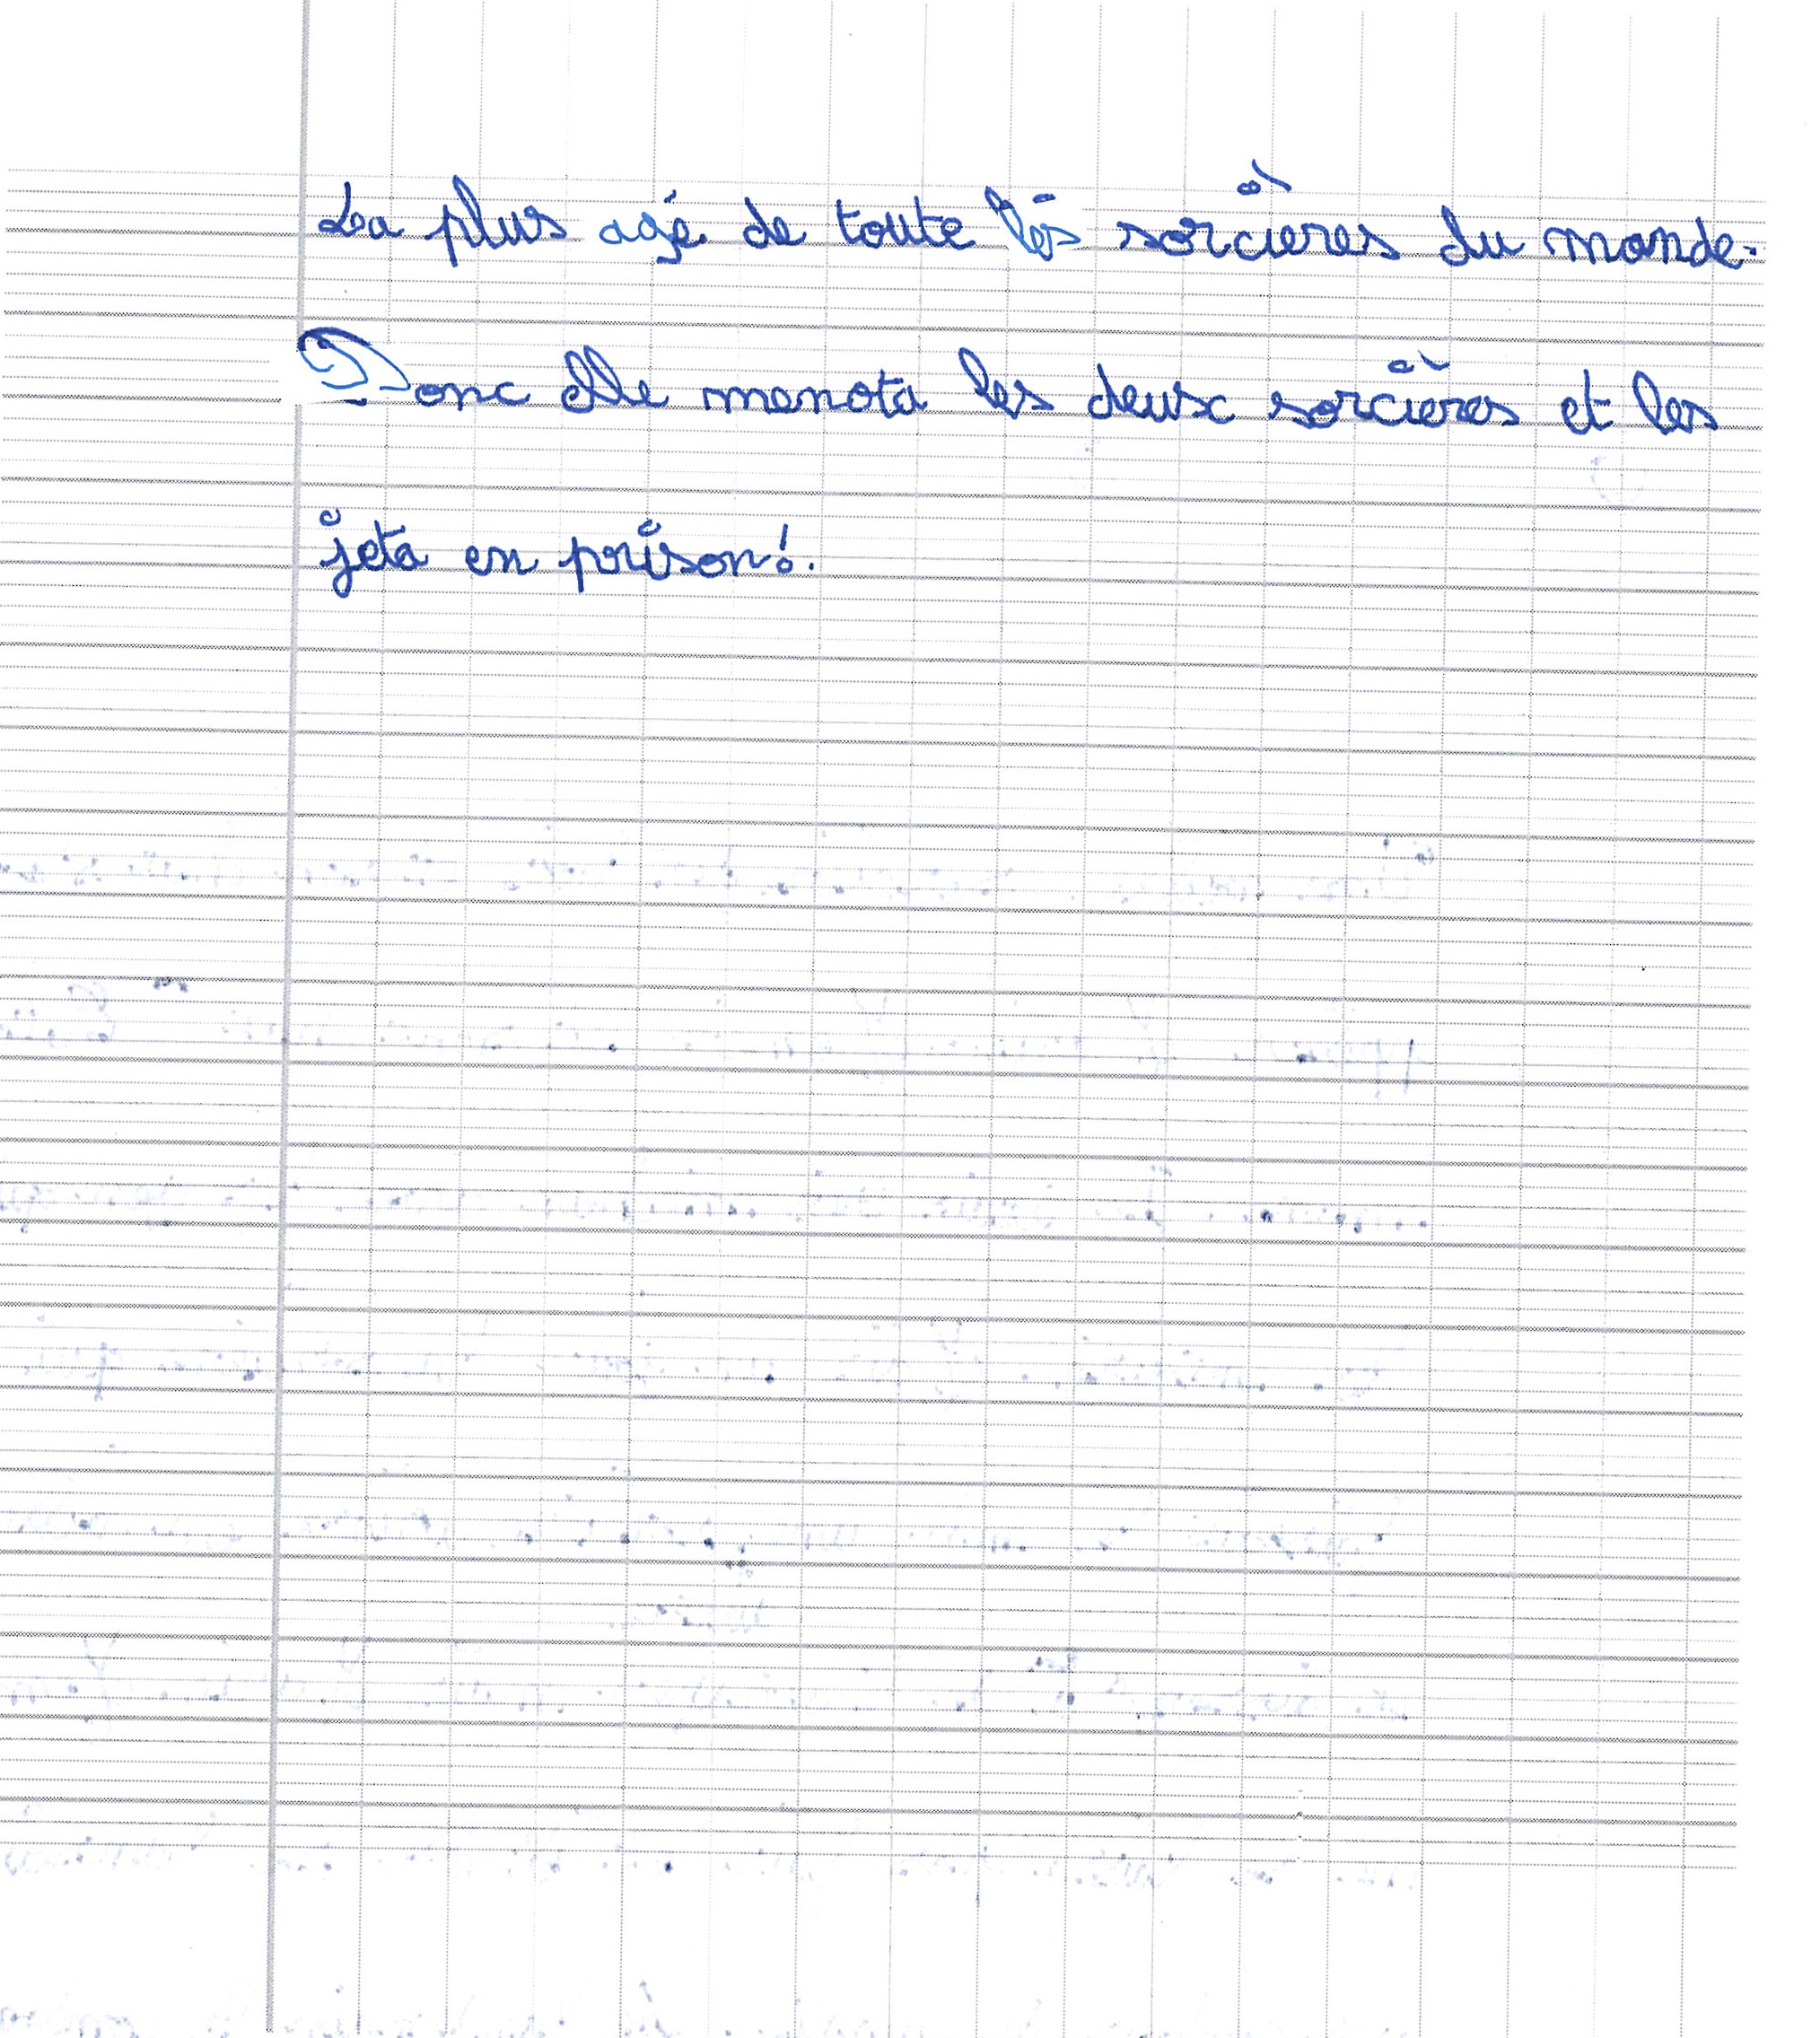 La plus agé de toute les sorcières du monde.
Donc elle menota les deux sorcières et les
jeta en prison!.